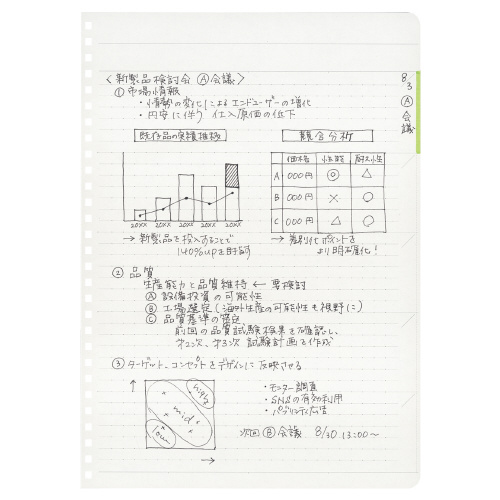 〈新製品検討会 Ⓐ会議〉
8/3 Ⓐ会議
① 市場情報
・情勢の変化によるエンドユーザーの増化
・円安に伴う 仕入原価の低下
既存品の実績推移
競合分析
20XX 20XX 20XX 20XX 20XX
価格 性能 耐久性
A 000円 ◎ △
B 000円 × ○
C 000円 △ ○
→ 新製品を投入することで
140%upを目指す
→ 差別化ポイントを
より明確化!
② 品質
生産能力と品質維持 ← 要検討
Ⓐ 設備投資の可能性
Ⓑ 工場選定(海外生産の可能性も視野に)
Ⓒ 品質基準の策定
前回の品質試験結果を確認し、
第2次、第3次 試験計画を作成
③ ターゲット、コンセプトをデザインに反映させる
high
mid
low
・モニター調査
・SNSの有効利用
・パブリシティ広告
次回 Ⓑ会議 8/30 13:00〜